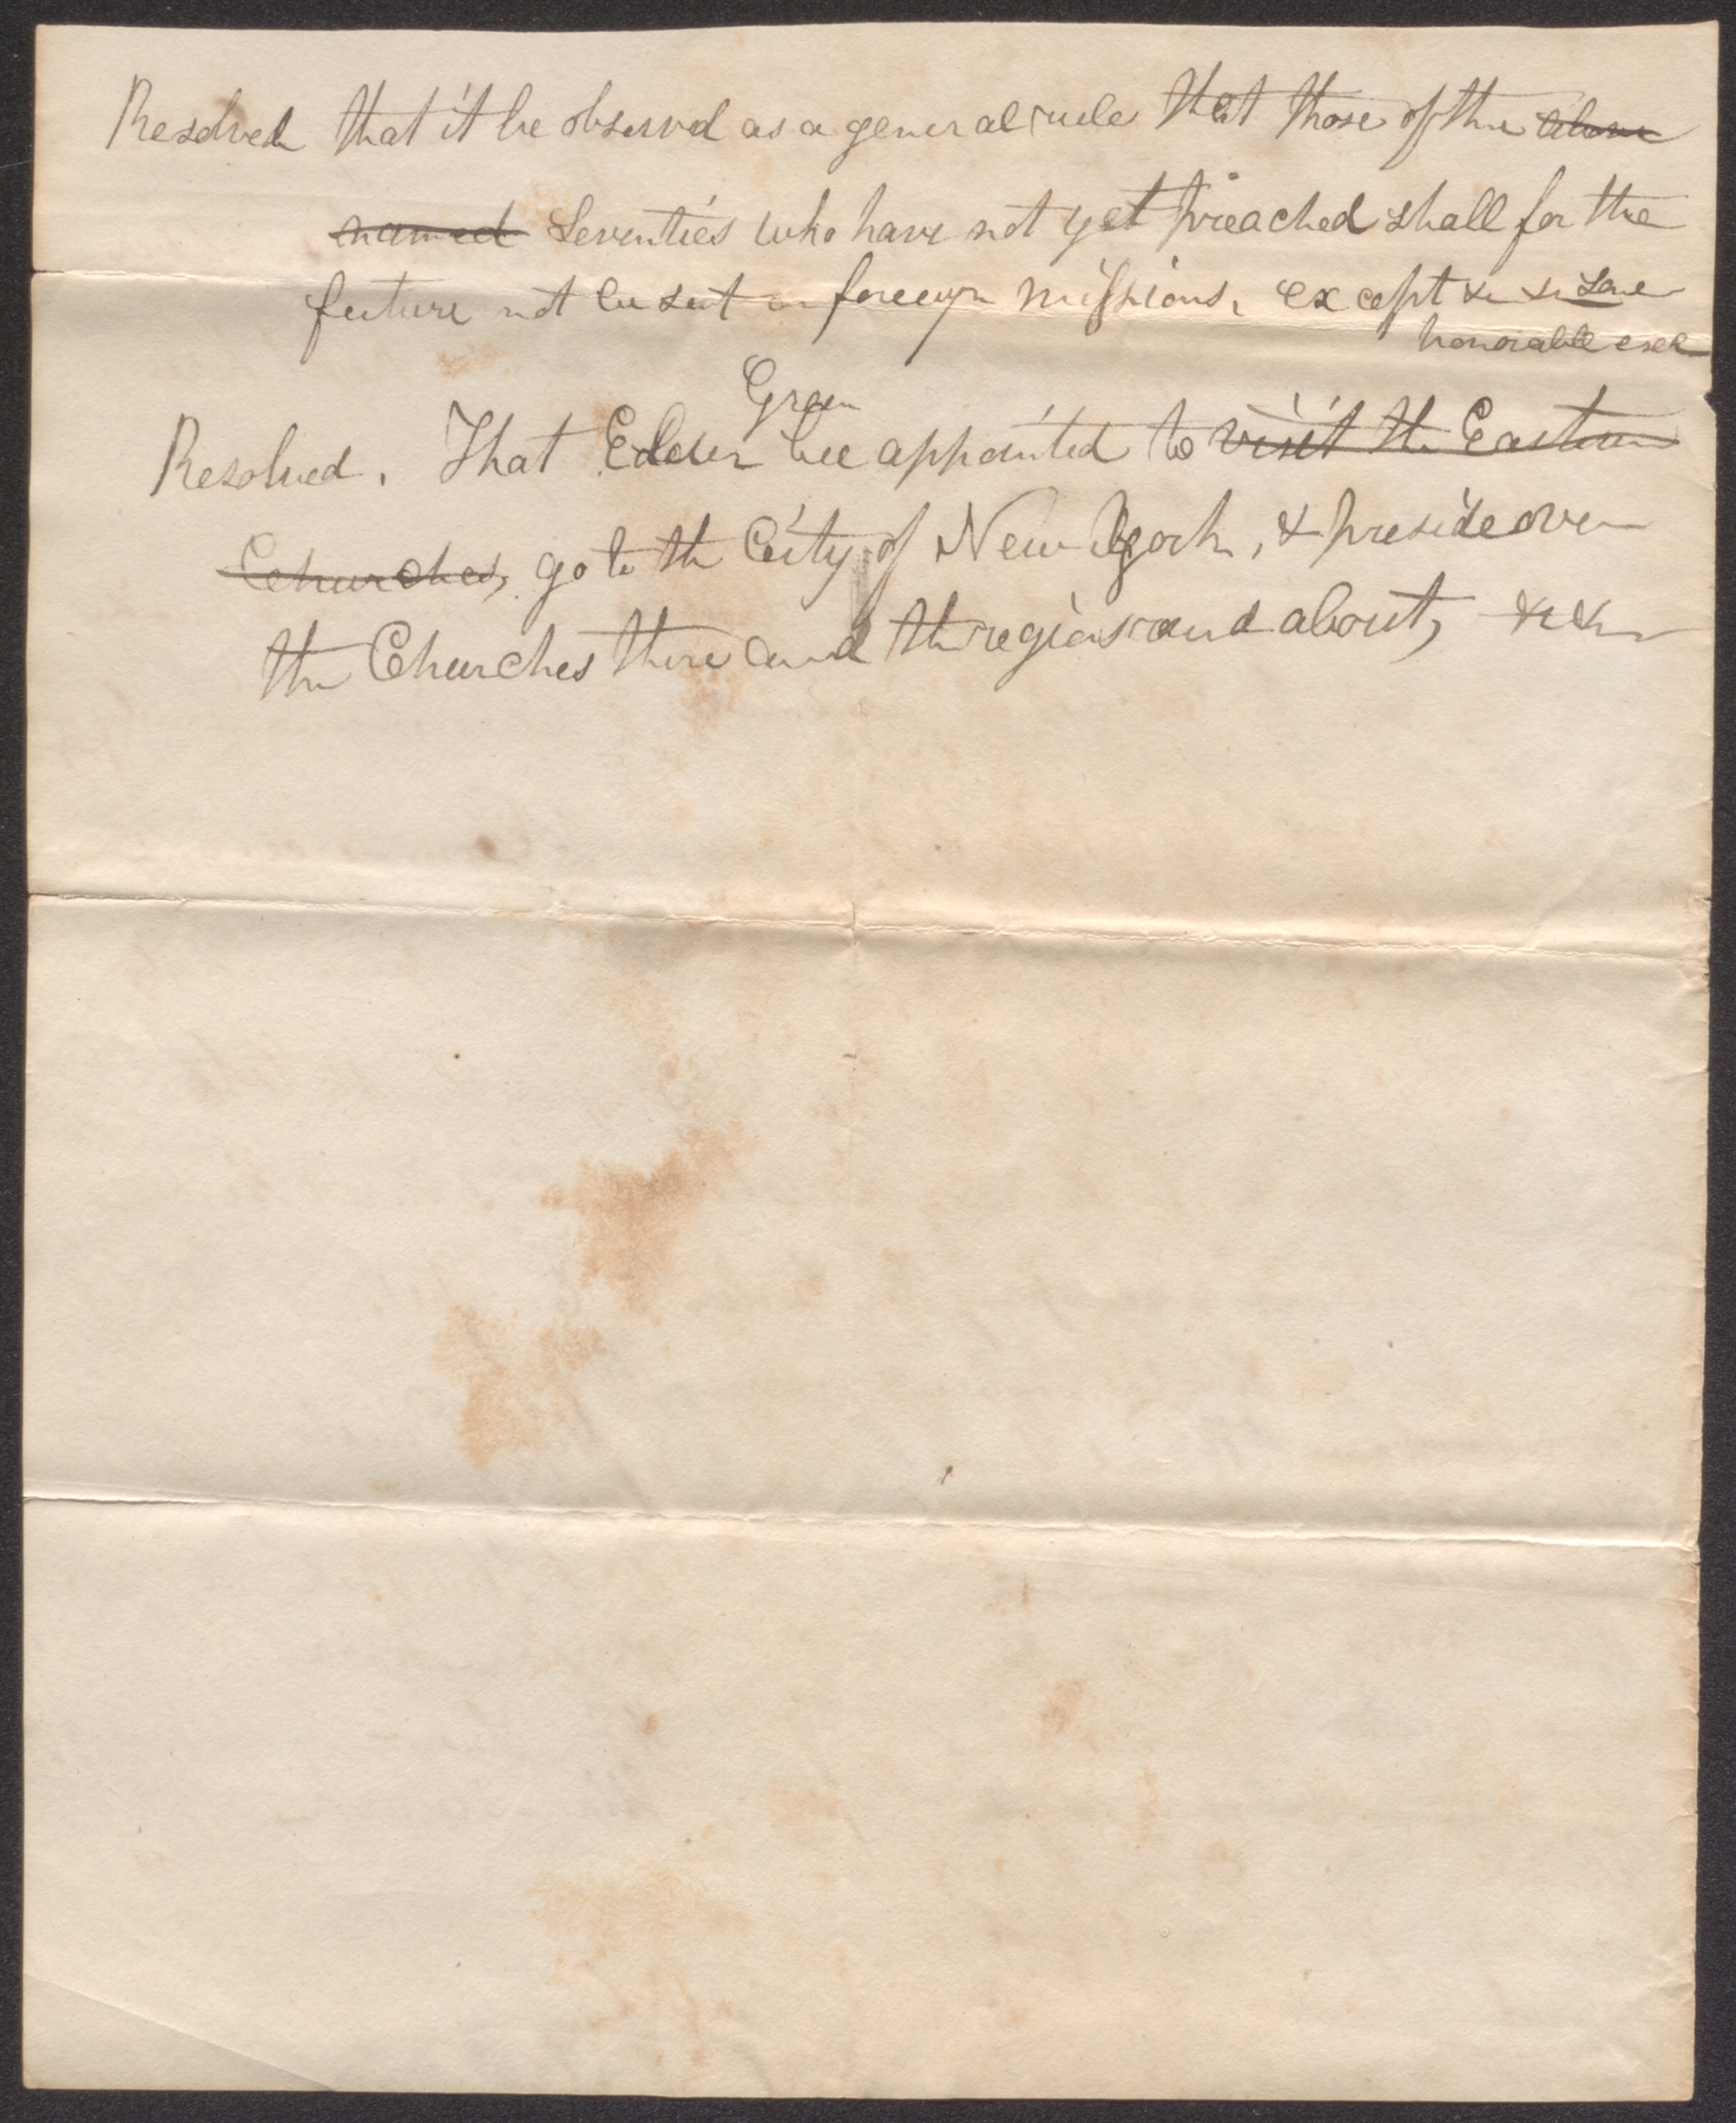 Resolved that it be observd as a general rule that those of the above
named Seventies who have not yet preached shall for the
future not be sent on foreign missions, except &c &c
honorable
Green
Resolved. That Elder be appointed to visit the Eastern
Churches, go to the City of New York, & preside over
the Churches there and the region round about, &c &c